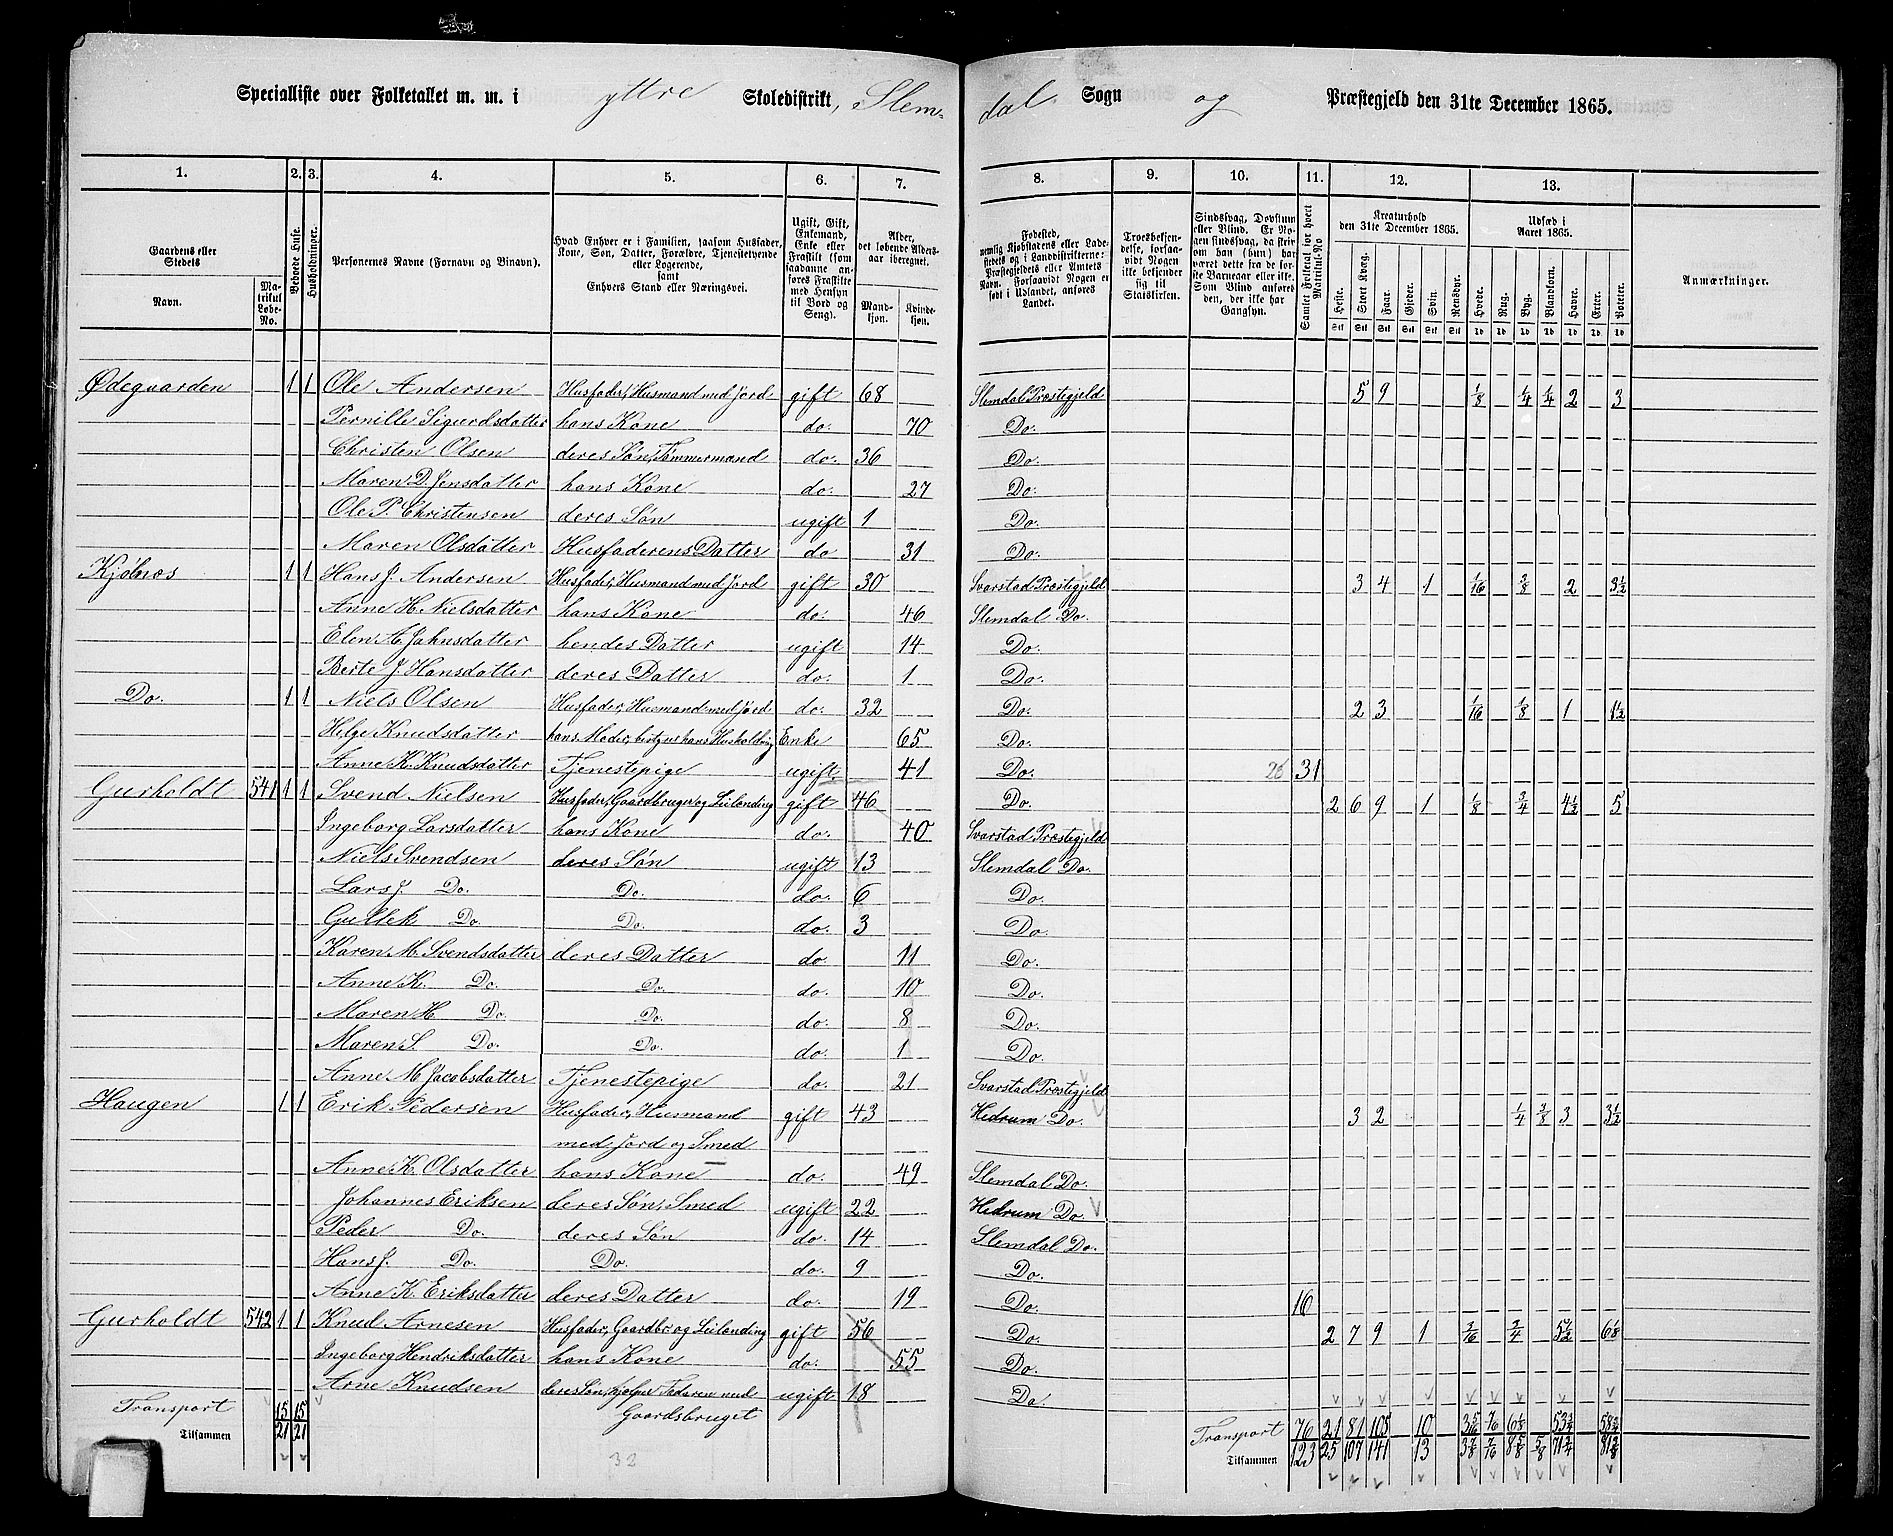 Specialliste over Folketallet m. m. i yttre Skoledistrikt, Slem-
dal Sogn og Præstegjeld den 31te December 1865.
1. 2. 3. 4. 5. 6. 7. 8. 9. 10. 11. 12. 13.
Gaardens eller Stedets
Navn.
Matrikul Løbe-No.
Beboede Huse.
Husholdninger.
Personernes Navne (Fornavn og Binavn).
Hvad Enhver er i Familien, saasom Husfader, Kone, Søn, Datter, Forældre, Tjenestetyende eller Logerende,
samt
Enhvers Stand eller Næringsvei.
Ugift, Gift, Enkemand, Enke eller Fraskilt (som saadanne anføres Fraskilte med Hensyn til Bord og Seng).
Alder, det løbende Alders-aar iberegnet.
Mandkjøn. Kvindekjøn.
Fødested, nemlig Kjøbstadens eller Ladestedets og i Landdistrikterne: Præstegjeldets eller Amtets Navn. Forsaavidt Nogen er født i Udlandet, anføres Landet.
Troesbekjendelse, forsaavidt Nogen ikke bekjender sig til Statskirken.
Sindssvag, Døvstum eller Blind. Er Nogen sindssvag, da skrives om han (hun) har været det fra de første Barneaar eller ikke. Som Blind anføres den, der ikke har Gangsyn.
Samlet Folketal for hvert Matrikul-No.
Kreaturhold den 31te December 1865.
Heste. Stort Kvæg. Faar. Gjeder. Svin. Rensdyr.
Udsæd i Aaret 1865.
Hvede. Rug. Byg. Blandkorn. Havre. Erter. Poteter.
Anmærkninger.
Stk Stk Stk Stk Stk Stk Td Td Td Td Td Td Td
Ødeguarden 1 1 Ole Andersen Husfader, Husmand med Jord gift 68 Slemdal Præstegjeld 5 9 1/8 1/4 1/4 2 3
Pernille Sigurdsdatter hans Kone do. 70 Do.
Christen Olsen deres Søn, Tømmermand do. 36 Do.
Maren D. Jensdatter hans Kone do. 27 Do.
Ole P. Christensen deres Søn ugift 1 Do.
Maren Olsdatter Husfaderens Datter do 31 Do.
Kjøbnæs 1 1 Hans J. Andersen Husfader, Husmand med Jord gift 30 Svarstad Præstegjeld 3 4 1 1/16 3/8 2 3 1/2
Anne H. Nielsdatter hans Kone do. 46 Slemdal Do.
Elen A. Jahnsdatter hendes Datter ugift 14 Do.
Berte J. Hansdatter deres Datter do. 1 Do.
Do. 1 1 Niels Olsen Husfader, Husmand med Jord do. 32 Do. 2 3 1/16 1/8 1 1 1/2
Helge Knudsdatter hans Moder, bestyrer hans Husholdning Enke 65 Do.
Anne K. Knudsdatter Tjenestepige ugift 41 Do. 26 31
Gurholdt 541 1 1 Svend Nielsen Husfader, Gaardbruger og Leilænding gift 46 Do. 2 6 9 1 1/8 3/4 4 1/2 5
Ingeborg Larsdatter hans Kone do. 40 Svarstad Præstegjeld
Niels Svendsen deres Søn ugift 13 Slemdal Do.
Lars J. Do. Do. do. 6 Do.
Gullek Do. Do. do. 3 Do.
Karen M. Svendsdatter deres Datter do. 11 Do.
Anne K. Do. Do. do. 10 Do.
Maren H. Do. Do. do. 8 Do.
Maren S. Do. Do. do. 1 Do.
Anne M. Jacobsdatter Tjenestepige do. 21 Svarstad Præstegjeld
Haugen 1 1 Erik Pedersen Husfader, Husmand gift 43 Hedrum Do. 3 2 1/4 3/8 3 3 1/2
med Jord og Smed
Anne K. Olsdatter hans Kone do. 49 Slemdal Do.
Johannes Eriksen deres Søn, Smed ugift 22 Hedrum Do.
Peder Do. deres Søn do. 14 Slemdal Do.
Hans J. Do. Do. do. 9 Do.
Anne K. Eriksdatter deres Datter do. 19 Do. 16
Gurholdt 542 1 1 Knud Arnesen Husfader, Gaardbr og Leilænding gift 56 Do. 2 7 9 1 3/16 3/4 5 1/2 6 1/8
Ingeborg Hendriksdatter hans Kone do. 55 Do.
Arne Knudsen deres Søn, hjelper Faderen med ugift 18 Do
Gaardsbruget
Transport 15 15 Transport 76 21 81 105 10 3 5/16 7/16 6 1/8 53 3/4 58 3/4
Tilsammen 21 21 Tilsammen 123 25 107 141 13 3 7/8 7/16 8 5/8 5/8 71 3/4 81 3/8
32